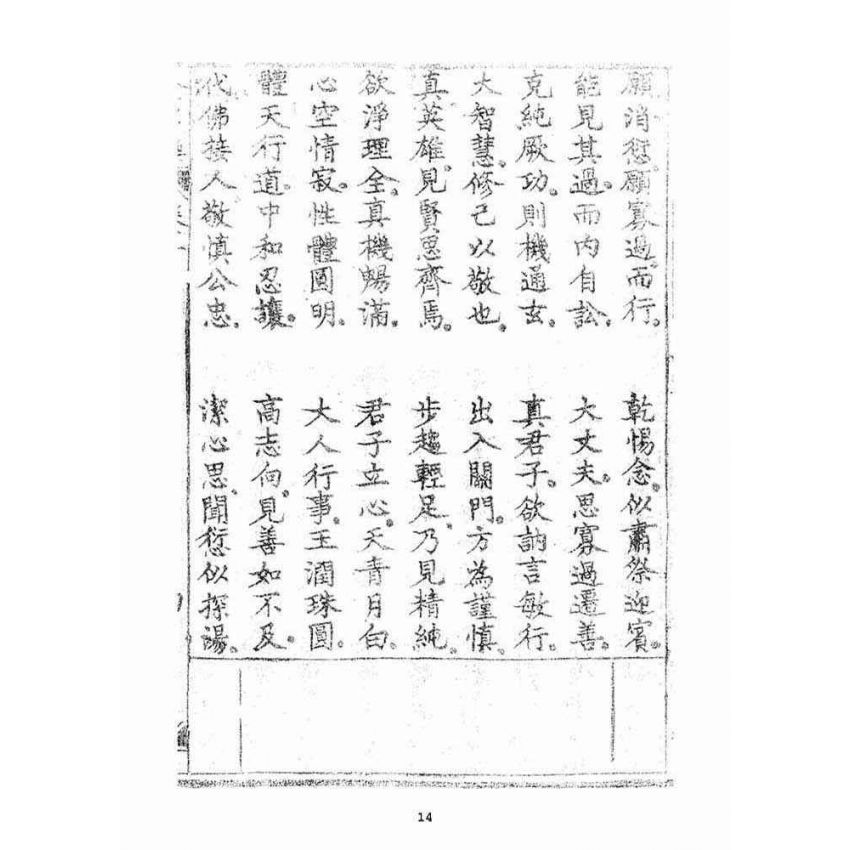 願消愆。願寡過而行。 乾惕念。似肅祭迎賓。
能見其過。而內自訟。 大丈夫。思寡過遷善。
克純厥功。則機通玄。 真君子。欲訥言敏行。
大智慧。修己以敬也。 出入關門。方為謹慎。
真英雄。見賢思齊焉。 步趨輕足。乃見精純。
欲淨理全。真機暢滿。 君子立心。天青月白。
心空情寂。性體圓明。 大人行事。玉潤珠圓。
體天行道。中和忍讓。 高志向。見善如不及。
代佛接人。敬慎公忠。 潔心思。聞愆似探湯。
14